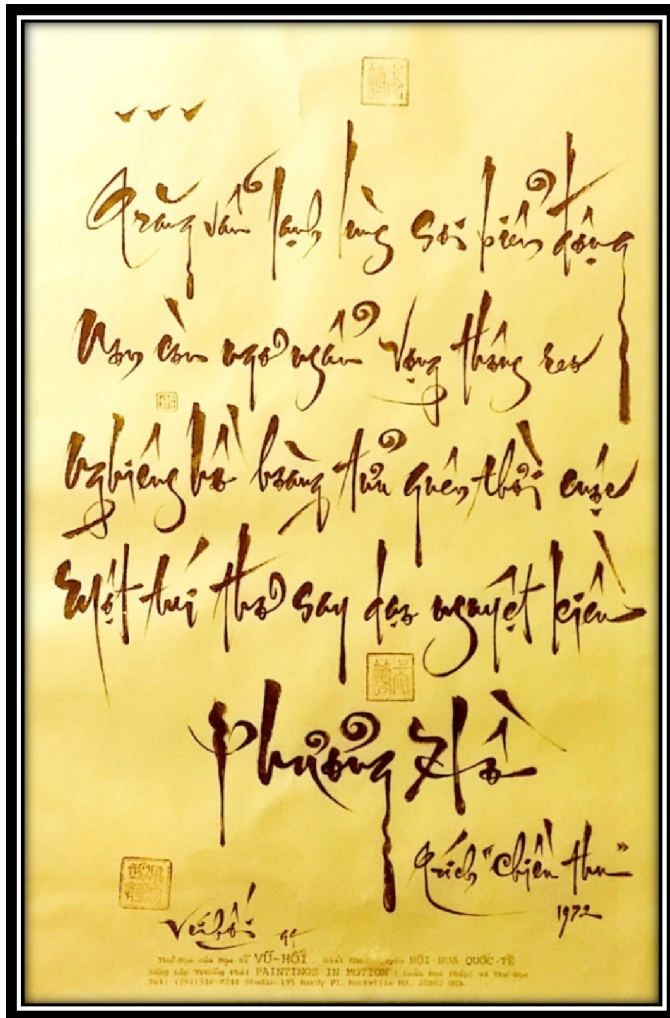 Trăng vẩn lạnh lùng soi biển động
Non còn ngơ ngẩn vọng thông reo
Nghiêng hồ tràng tửu quên thời cuộc
Một túi thơ say dạo nguyệt kiều
Phưởng Hồ
Trích "Chiều thu"
1972
Vũ Hối
Thư-Họa của Họa-Sĩ VŨ-HỐI . Giải Khôi Nguyên HỘI-HỌA QUỐC-TẾ
Sáng Lập Trường Phái PAINTINGS IN MOTION ( Họa Pháp) và Thư-Họa
Tel: Studio 195 Hardy Pl. Rockville Md. USA